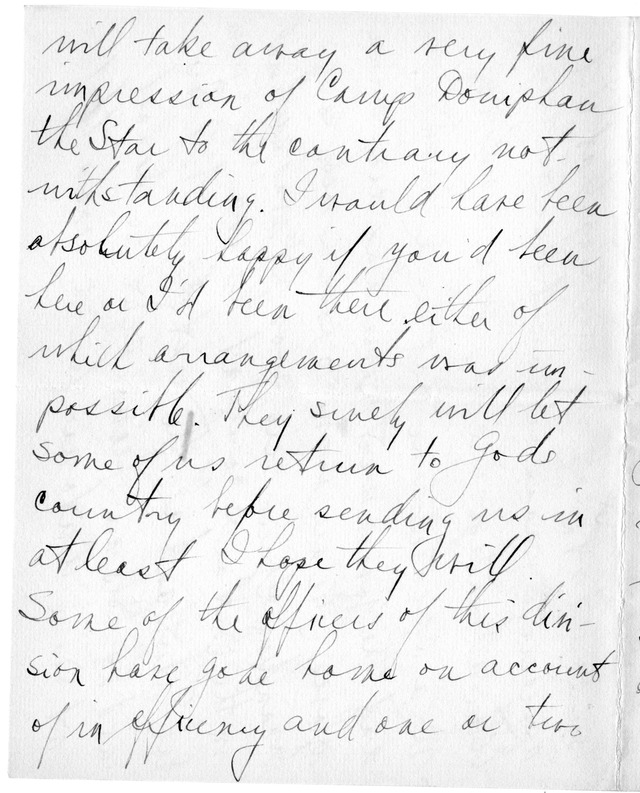 will take away a very fine
impression of Camp Doniphan
the Star to the contrary not-
withstanding. I would have been
absolutely happy if you'd been
here or I'd been there either of
which arrangements was im-
possible. They surely will let
some of us return to Gods
country before sending us in
at least I hope they will.
Some of the officers of this divi-
sion have gone home on account
of inefficiency and one or two